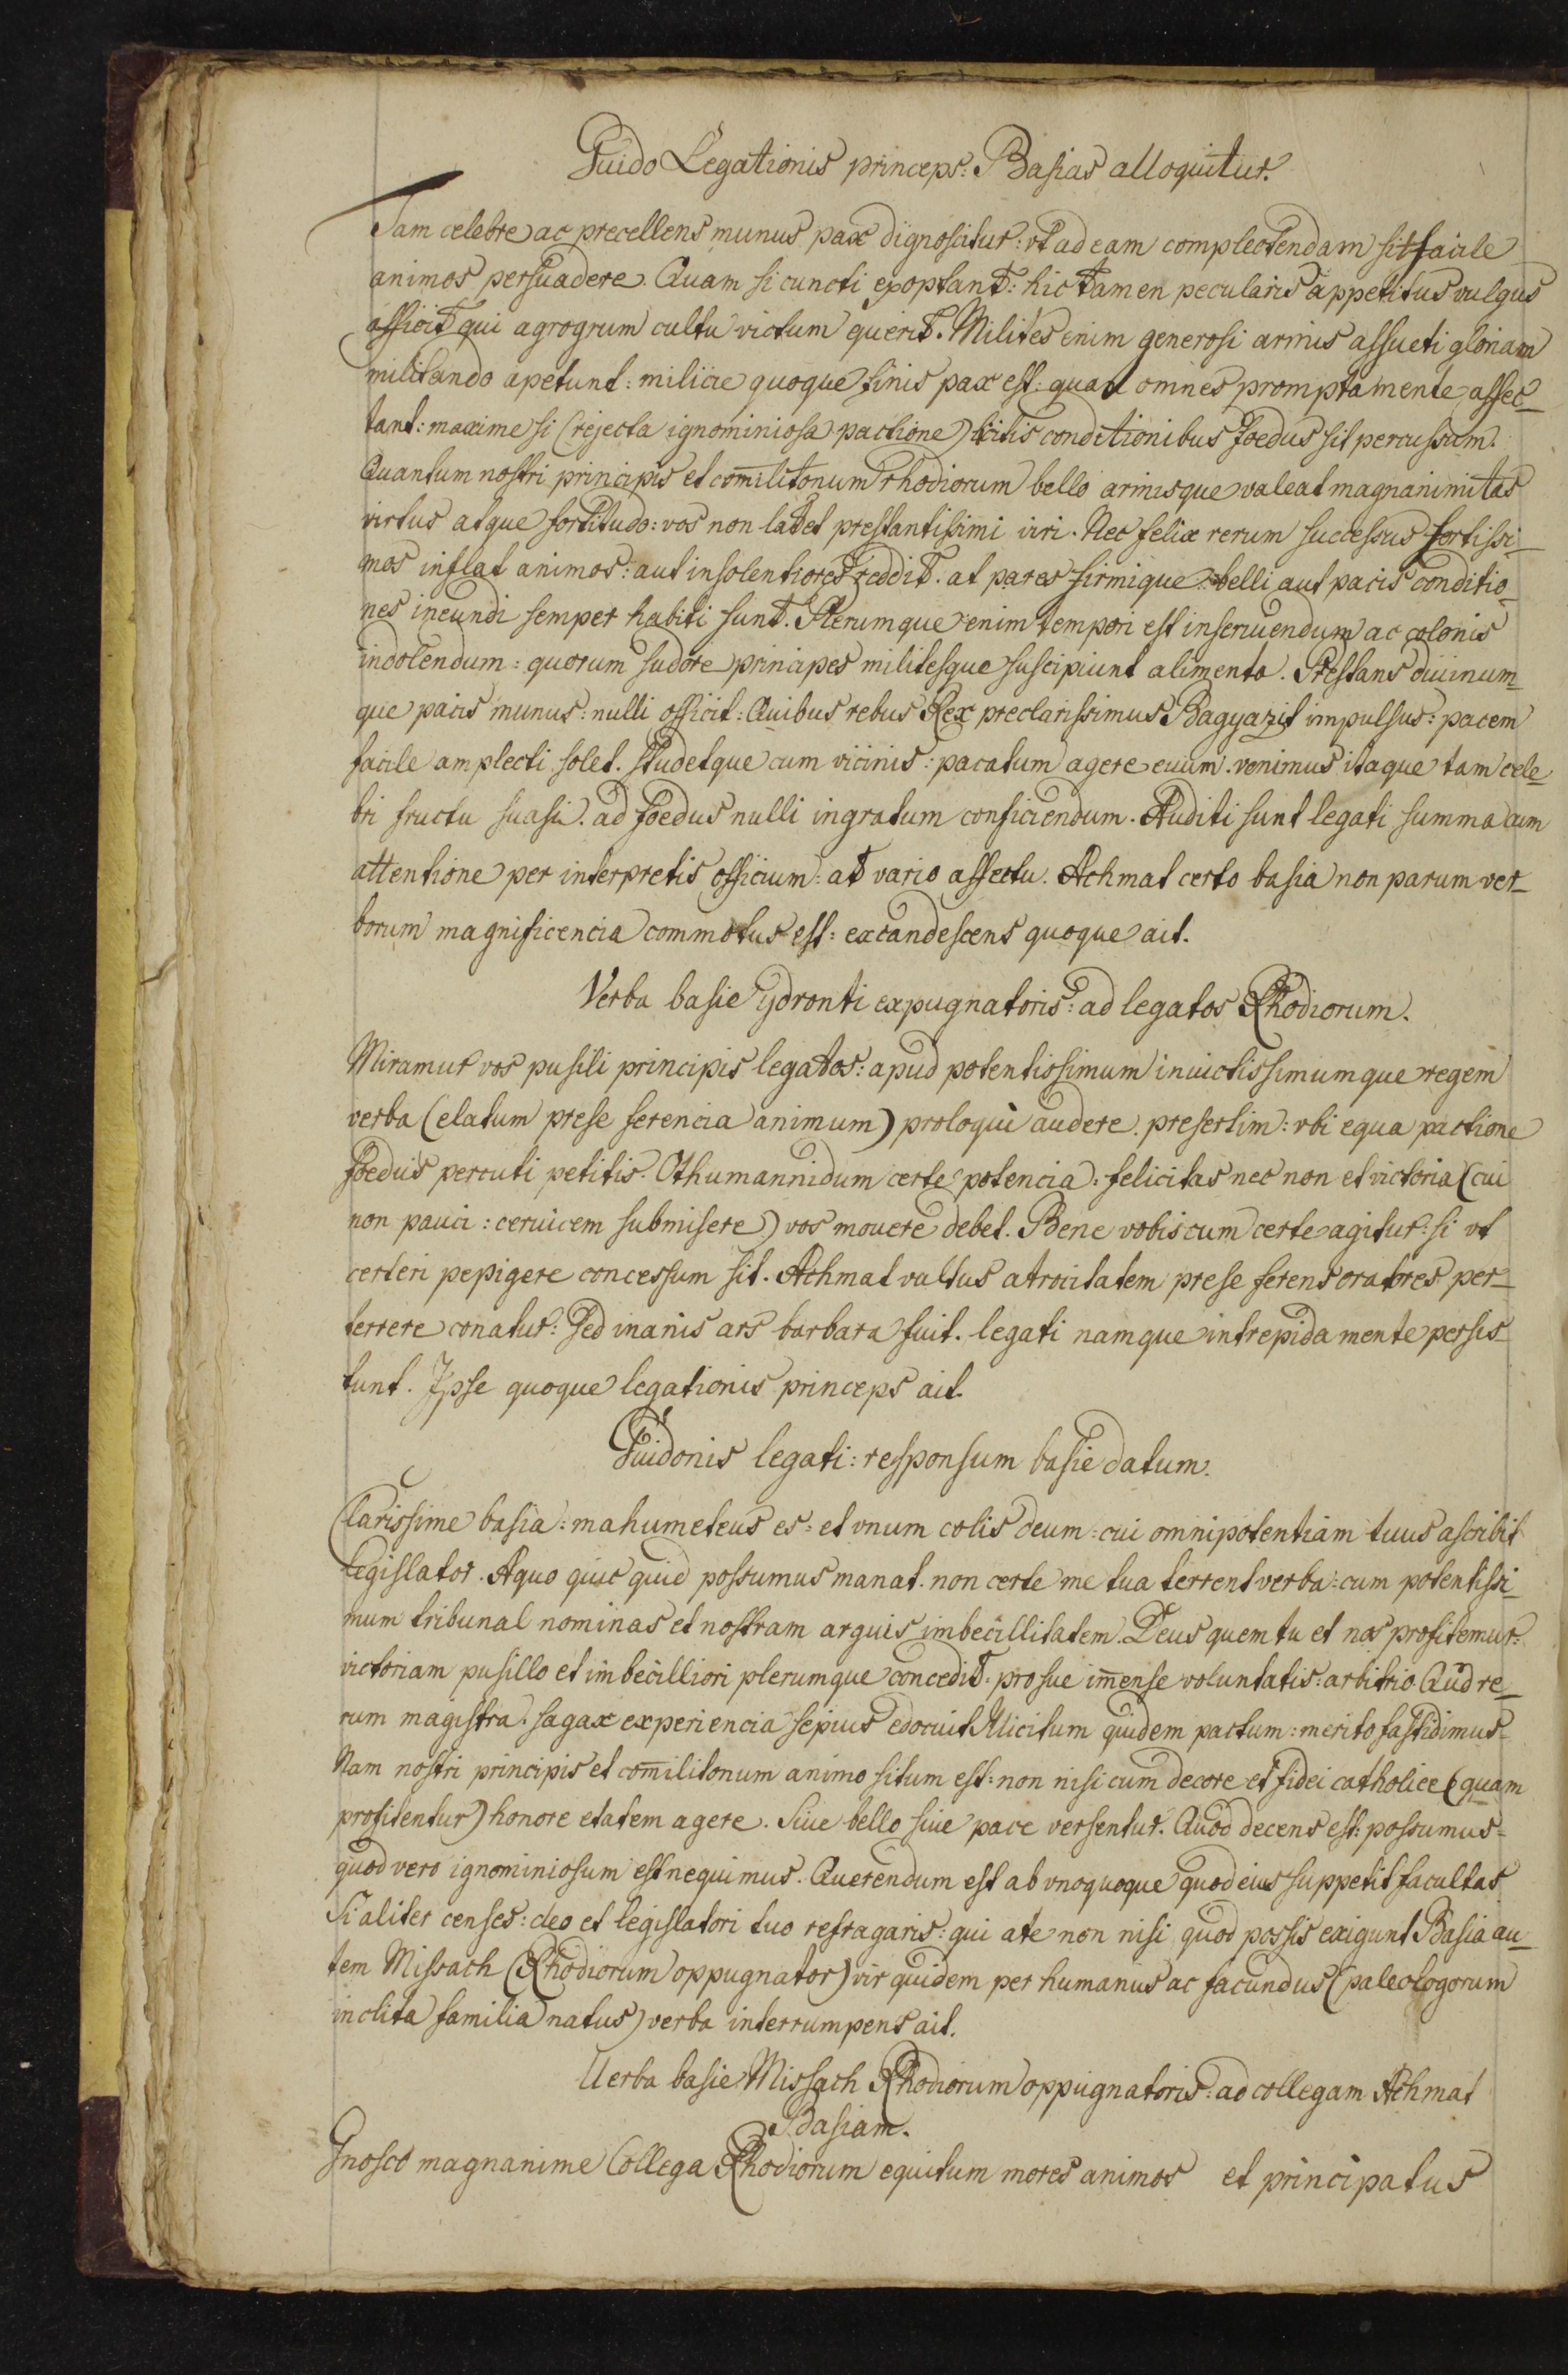 Guido Legationis princeps: Basias alloquitur.
Tam celebre ac precellens munus pax dignoscitur: vt ad eam complectendam sit facile
animos persuadere. Quam si cuncti exoptant: hic tamen pecularis appetitus vulgus
afficit qui agrogrum cultu victum querit. Milites enim generosi armis assueti gloriam
militando apetunt: milicie quoque finis pax est: quam omnes prompta mente affec-
tant: maxime si (rejecta ignominiosa pactione) licitis conditionibus foedus sit percussum.
Quantum nostri principis et comilitonum rhodiorum bello armisque valeat magnanimitas
virtus atque fortitudo: vos non latet prestantissimi viri. Nec felix rerum successus fortissi-
mos inflat animos: aut insolentiores reddit. at pares firmique belli aut pacis conditio-
nes ineundi semper habiti sunt. Plerumque enim tempori est inseruiendum ac colonis
indolendum: quorum sudore principes militesque suscipiunt alimenta. Prestans diuinum-
que pacis munus: nulli officit: Quibus rebus Rex preclarissimus Bagyazit impulsus: pacem
facile amplecti solet. studetque cum vicinis: pacatum agere euum. venimus itaque tam cele-
bri fructu suasi. ad foedus nulli ingratum conficiendum. Auditi sunt legati summa cum
attentione per interpretis officium: at vario affectu. Achmat certo basia non parum ver-
borum magnificencia commotus est: excandescens quoque ait.
Verba basie ydronti expugnatoris: ad legatos Rhodiorum.
Miramur vos pusili principis legatos: apud potentissimum inuictissimumque regem
verba (elatum prese ferencia animum) proloqui audere. presertim: vbi equa pactione
foedus percuti petitis. Othumannidum certe potencia: felicitas nec non et victoria (cui
non pauci: ceruicem submisere) vos mouere debet. Bene vobiscum certe agitur: si vt
certeri pepigere concessum sit. Achmat vultus atrocitatem prese ferens oratores per-
terrere conatur: Sed inanis ars barbara fuit. legati namque intrepida mente persis-
tunt. Ipse quoque legationis princeps ait.
Guidonis legati: responsum basie datum.
Clarissime basia: mahumeteus es: et vnum colis deum: cui omnipotentiam tuus ascribit
legislator. Aquo quic quid possumus manat. non certe me tua terrent verba: cum potentissi-
mum tribunal nominas et nostram arguis imbecillitatem. Deus quem tu et nos profitemur:
victoriam pusillo et imbecilliori plerumque concedit: pro sue imense voluntatis: arbitrio. Qud re-
rum magistra: sagax experiencia sepius edocuit Illicitum quidem pactum: merito fastidimus-
Nam nostri principis et comilitonum animo situm est: non nisi cum decore et fidei catholice (quam
profitentur) honore etatem agere. Siue bello siue pace versentur. Quod decens est: possumus:
quod vero ignominiosum est nequimus. Querendum est ab vnoquoque quod eius suppetit facultas
Si aliter censes: deo et legislatori tuo refragaris: qui ate non nisi quod possis exigunt Basia au-
tem Missach (Rhodiorum oppugnator) vir quidem per humanus ac facundus (paleologorum
inclita familia natus) verba interrumpens ait.
Uerba basie Missach Rhodiorum oppugnatoris: ad collegam Achmat
Basiam.
Gnosco magnanime Collega Rhodiorum equitum mores animos et principatus